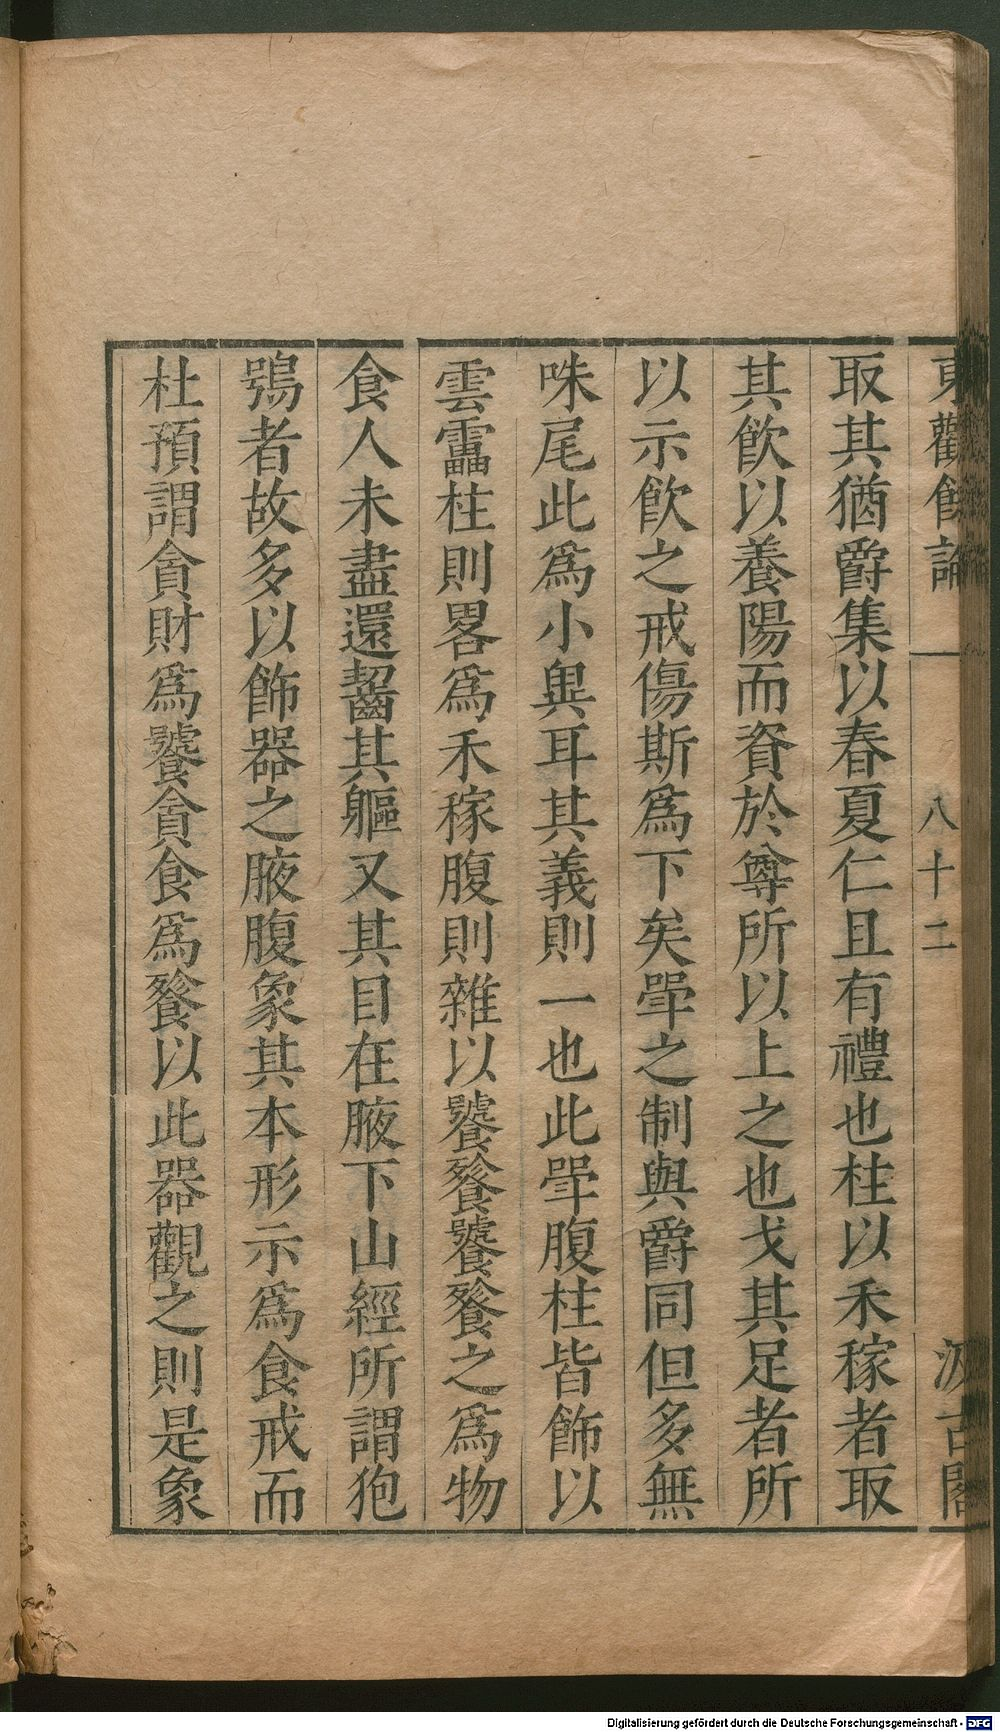 東觀餘論 八十二 汲古閣
取其猶爵集以春夏仁且有禮也柱以禾稼者取
其飲以養陽而資於尊所以上之也戈其足者所
以示飲之戒傷斯爲下矣斝之制與爵同但多無
咮尾此爲小異耳其義則一也此斝腹柱皆飾以
雲靁柱則畧爲禾稼腹則雜以饕餮饕餮之爲物
食人未盡還齧其軀又其目在腋下山經所謂狍
鴞者故多以飾器之腋腹象其本形示爲食戒而
杜預謂貪財爲饕貪食爲餮以此器觀之則是象
Digitalisierung gefördert durch die Deutsche Forschungsgemeinschaft - DFG